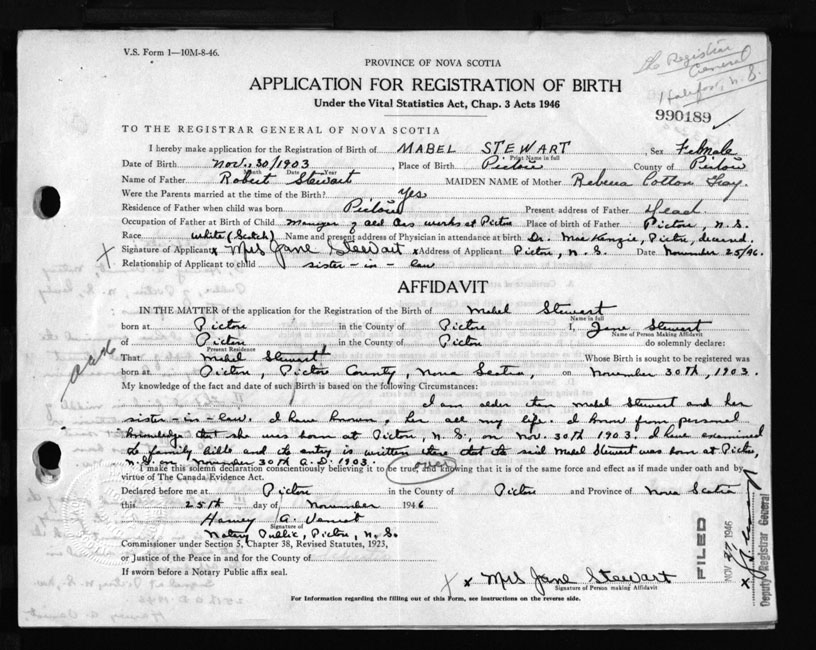 V.S. Form 1—10M-8-46.
PROVINCE OF NOVA SCOTIA
The Registrar General Halifax, N.S.
APPLICATION FOR REGISTRATION OF BIRTH
Under the Vital Statistics Act, Chap. 3 Acts 1946
990189 ✓
TO THE REGISTRAR GENERAL OF NOVA SCOTIA
I hereby make application for the Registration of Birth of MABEL STEWART, Sex Female
Print Name in full
Date of Birth Nov. 30/1903, Place of Birth Pictou County of Pictou
Month Date Year
Name of Father Robert Stewart MAIDEN NAME of Mother Rebecca Cotton
Were the Parents married at the time of the Birth? Yes
Residence of Father when child was born Pictou Present address of Father Dead
Occupation of Father at Birth of Child Manager of works at Pictou Place of birth of Father Pictou, N.S.
Race White (Scotch) Name and present address of Physician in attendance at birth Dr. MacKenzie, Pictou, deceased.
X Signature of Applicant x Mrs Jane Stewart x Address of Applicant Pictou, N.S. Date November 25/46.
Relationship of Applicant to child sister-in-law
AFFIDAVIT
IN THE MATTER of the application for the Registration of the Birth of Mabel Stewart
Name in full
born at Pictou in the County of Pictou I, Jane Stewart
Name of Person Making Affidavit
of Pictou in the County of Pictou do solemnly declare:
Present Residence
That Mabel Stewart Whose Birth is sought to be registered was
born at Pictou, Pictou County, Nova Scotia, on November 30th, 1903.
My knowledge of the fact and date of such Birth is based on the following Circumstances:
I am older then Mabel Stewart and her
sister-in-law. I have known her all my life. I know from personal
knowledge that she was born at Pictou, N.S., on Nov. 30th 1903. I have examined
the family bible and the entry is written there that the said Mabel Stewart was born at Pictou
N.S. on November 30th A.D. 1903. (over)
I make this solemn declaration conscientiously believing it to be true, and knowing that it is of the same force and effect as if made under oath and by
virtue of The Canada Evidence Act.
Declared before me at Pictou in the County of Pictou and Province of Nova Scotia
this 25th day of November 1946
Harvey A.
Signature of
Notary Public, Pictou, N.S.
Commissioner under Section 5, Chapter 38, Revised Statutes, 1923,
or Justice of the Peace in and for the County of
If sworn before a Notary Public affix seal.
X x Mrs Jane Stewart
Signature of Person making Affidavit
For Information regarding the filling out of this Form, see instructions on the reverse side.
FILED
NOV 27 1946
Deputy Registrar General